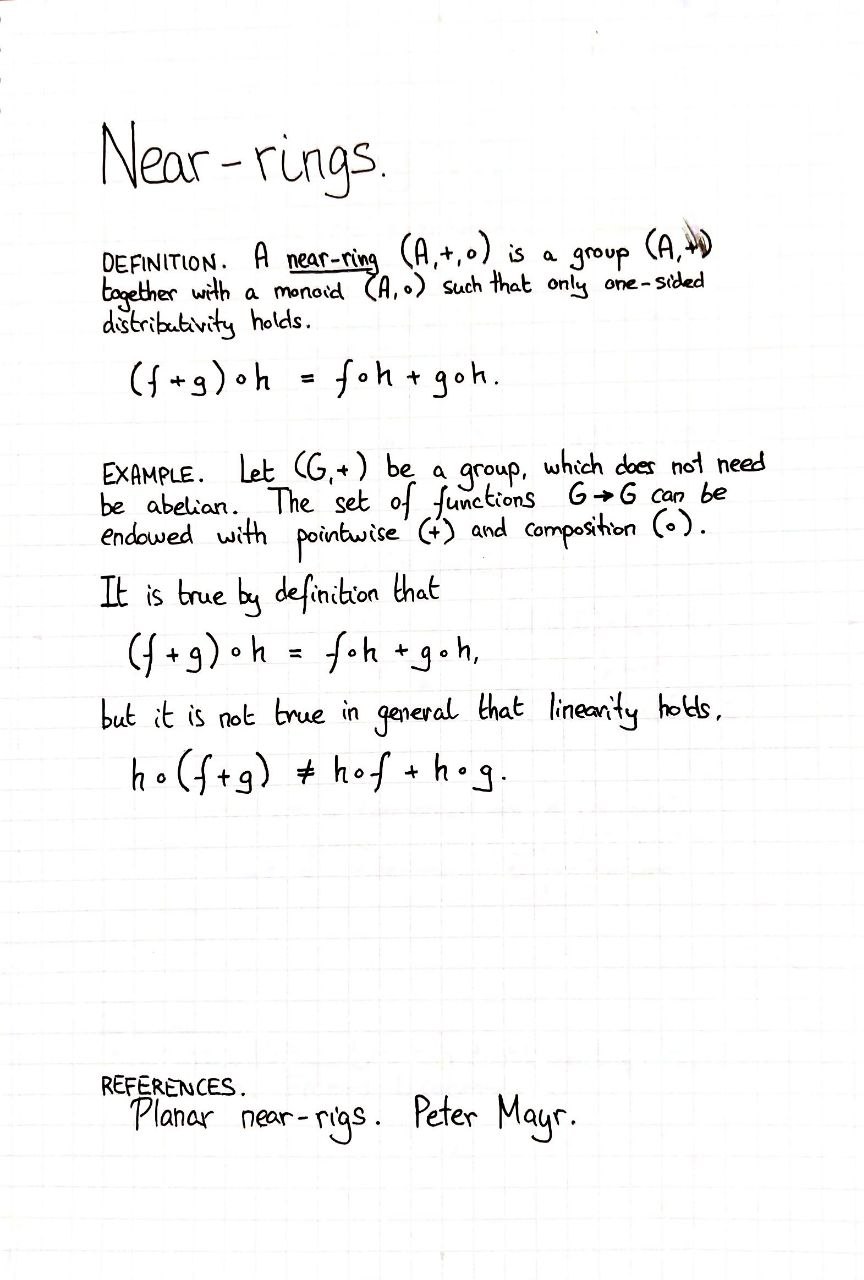 Near-rings.
DEFINITION. A near-ring (A,+,∘) is a group (A,+)
together with a monoid (A,∘) such that only one-sided
distributivity holds.
(f+g)∘h = f∘h + g∘h.
EXAMPLE. Let (G,+) be a group, which does not need
be abelian. The set of functions G→G can be
endowed with pointwise (+) and composition (∘).
It is true by definition that
(f+g)∘h = f∘h + g∘h,
but it is not true in general that linearity holds,
h∘(f+g) ≠ h∘f + h∘g.
REFERENCES.
Planar near-rigs. Peter Mayr.